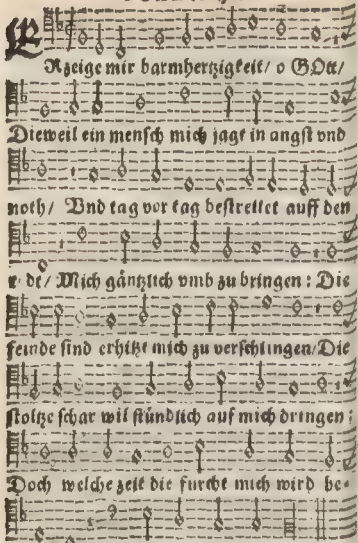 ERzeige mir barmhertzigkeit/ o GOtt/
Dieweil ein mensch mich jagt in angst vnd
noth/ Vnd tag vor tag bestreitet auff den
Mich gäntzlich vmb zu bringen: Die
feinde sind erhitzt mich zu verschlingen/Die
stoltze schar wil stündlich auf mich dringen:
Doch welche zeit die furcht mich wird be-